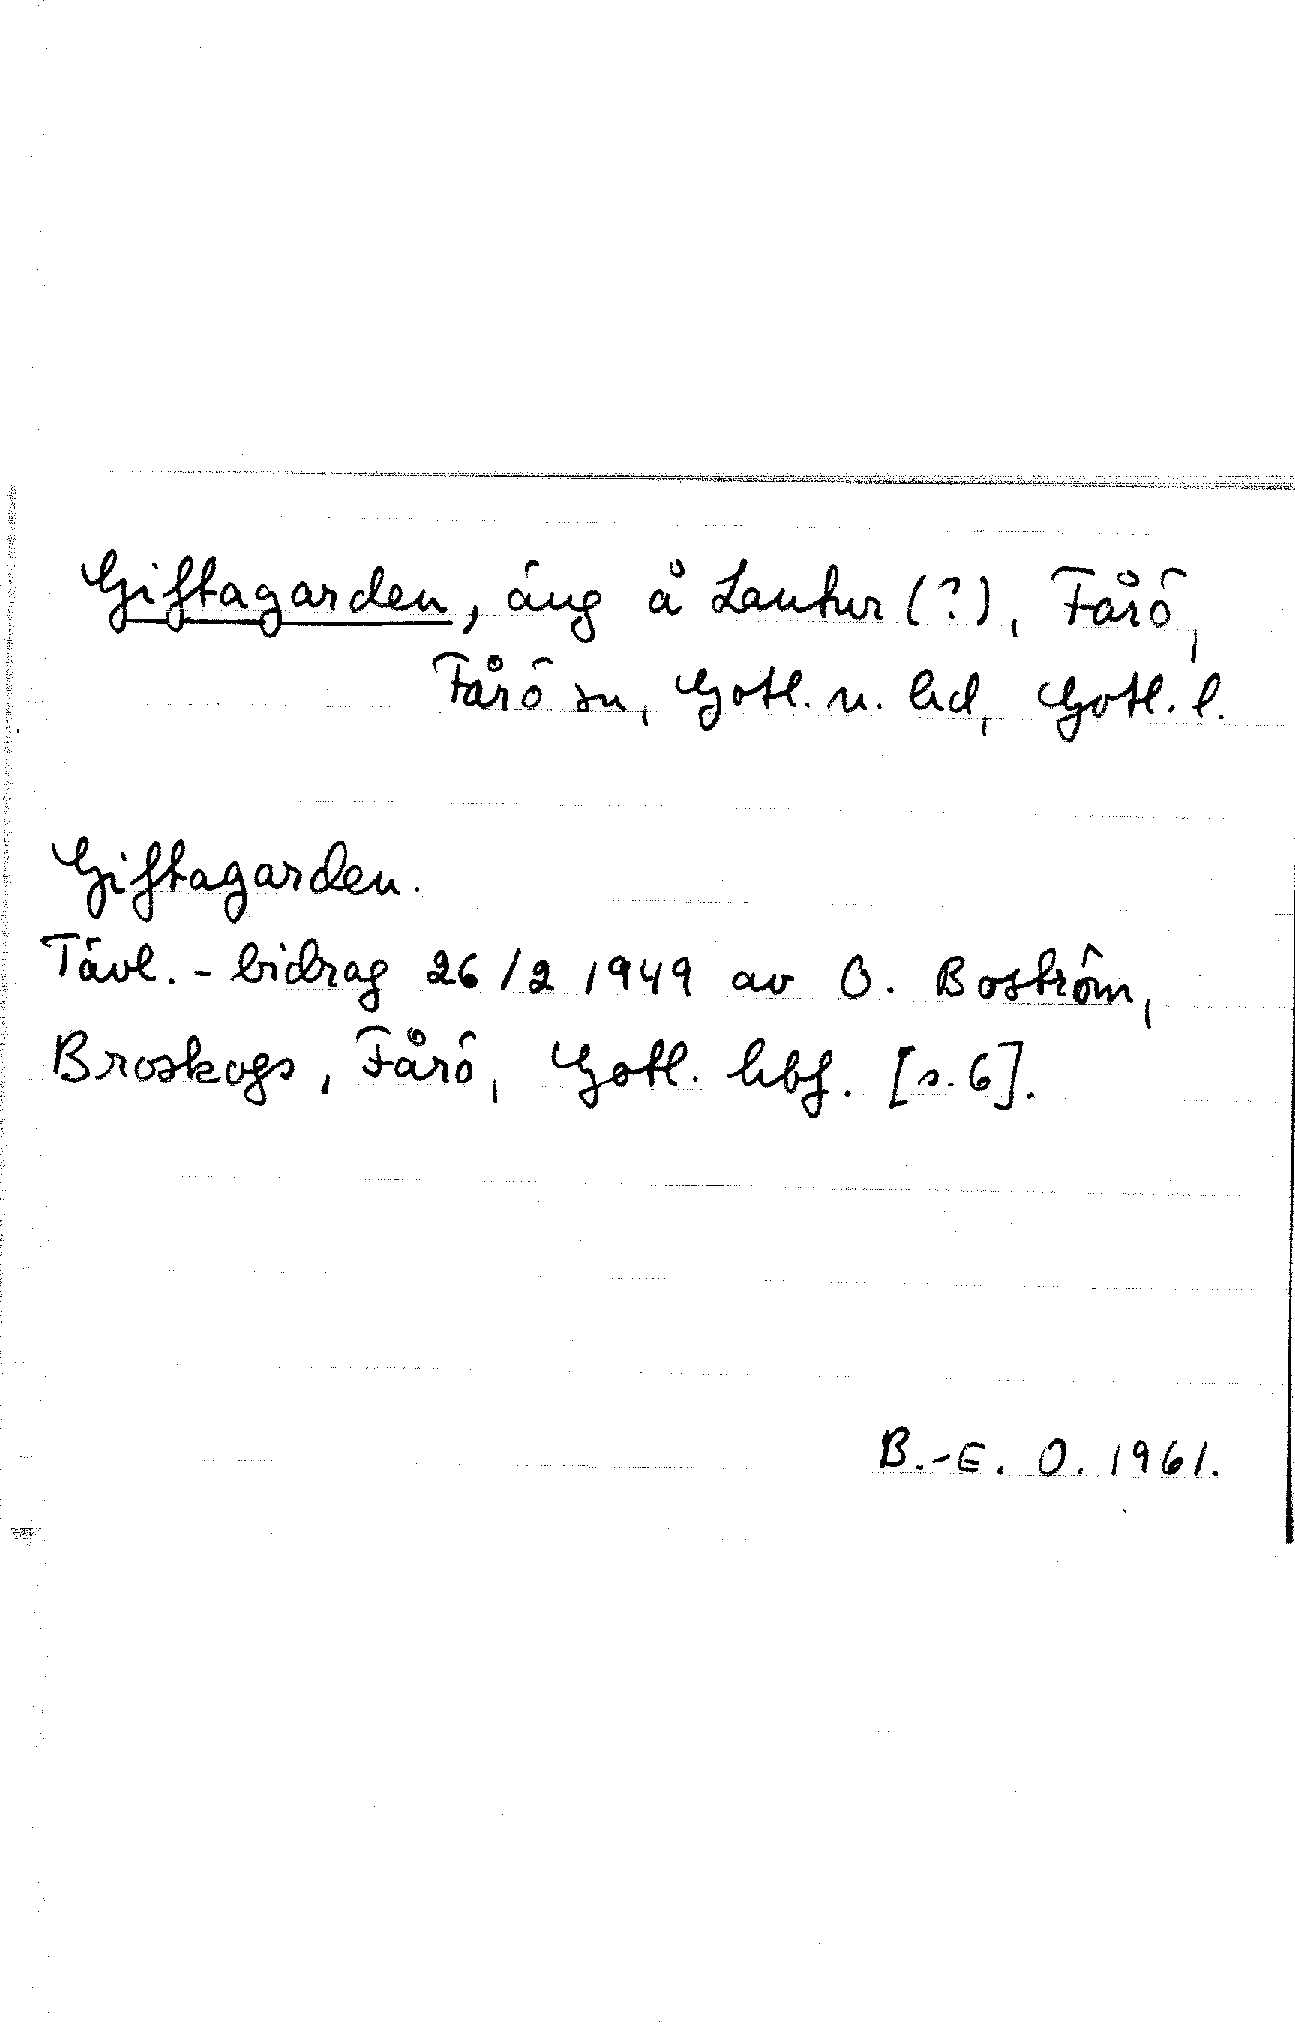 Giftagarden, äng å Lautur (?), Fårö,
Fårö sn, Gotl. n. hd, Gotl. l.
Giftagarden.
Tävl.-bidrag 26/2 1949 av O. Boström,
Broskogs, Fårö, Gotl. hbf. [s. 6].
B.-E. O. 1961.